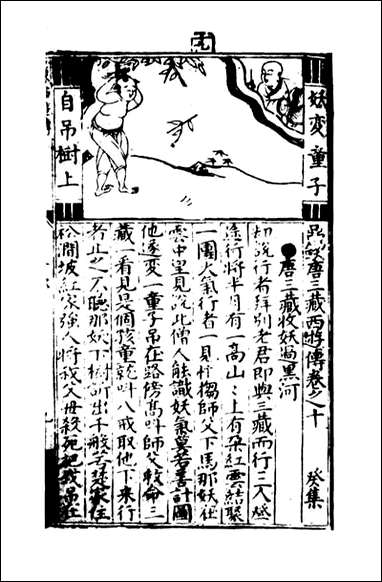 妖变童子
自吊樹上
唐三藏西遊傳卷之十 癸集
唐三藏收妖過黑河
却說行者拜別老君即與三藏而行三人登
途行將半月有一高山〻上有朶紅雲結聚
一團火氣行者一見忙搊師父下馬那妖在
雲中望見說此僧人能識妖氣莫若善計圖
他遂變一童子吊在路傍高叫師父救命三
藏一看見是個孩童就叫八戒取他下來行
者止之不聽那妖下樹訴出千般苦楚家住
松間坡紅家強人將我父母殺死把我吊在